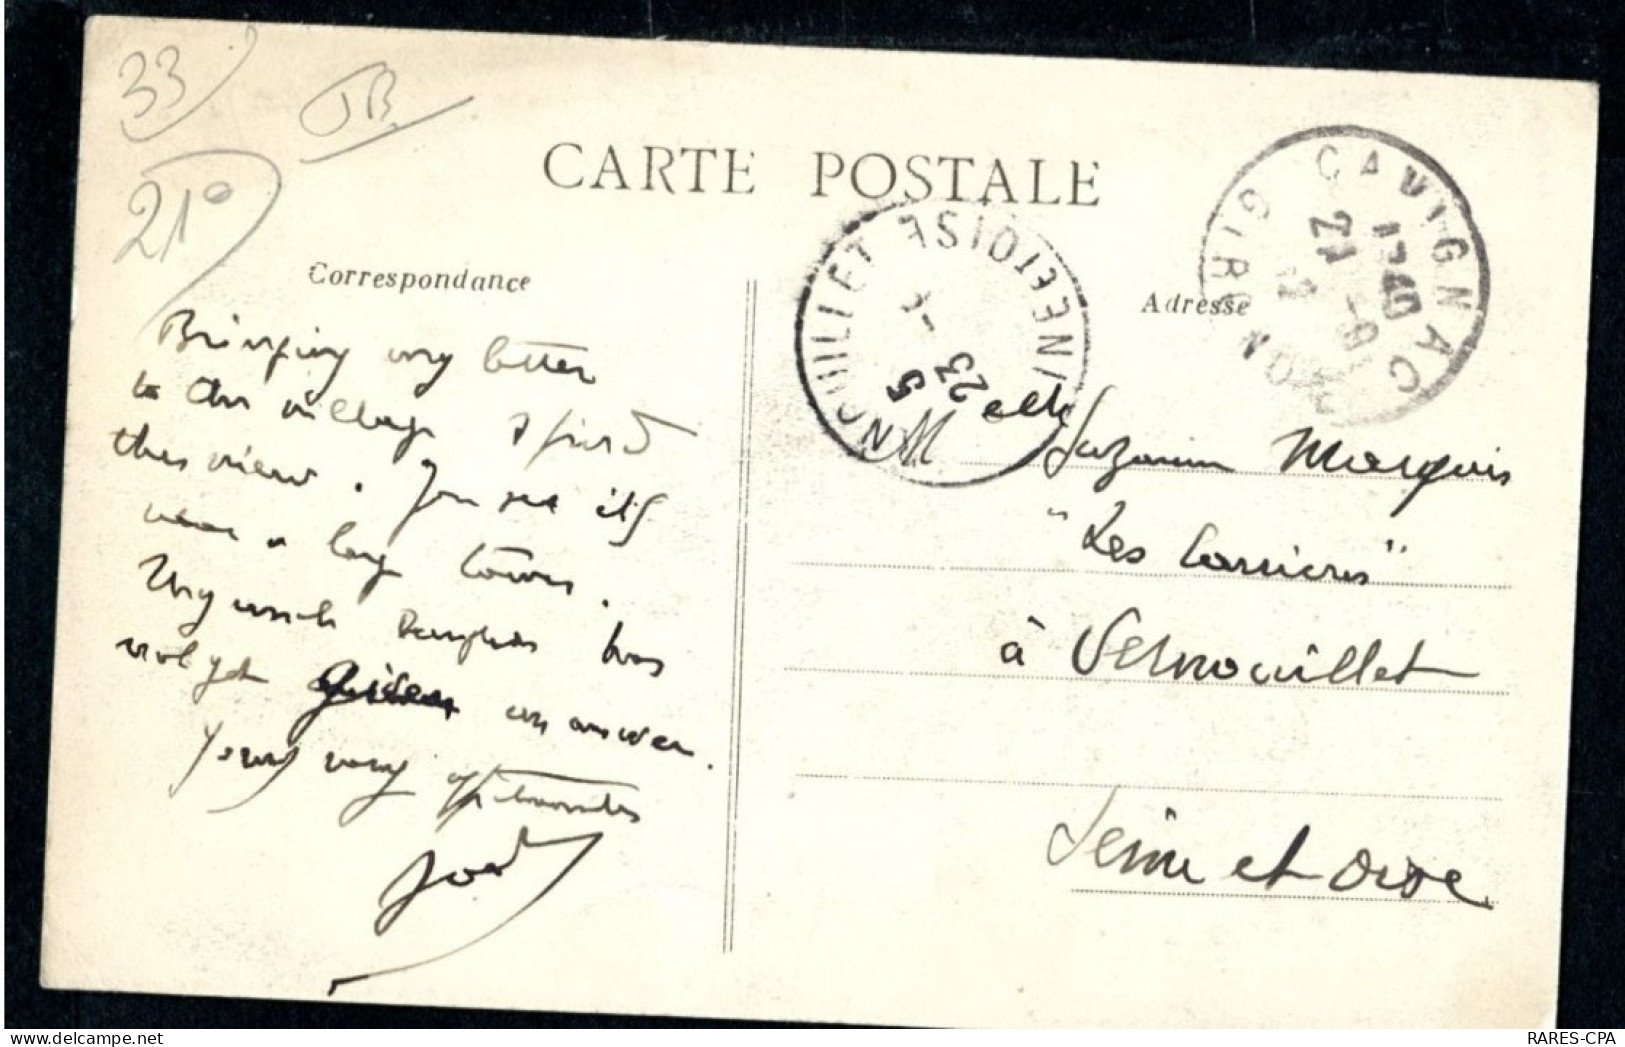 33
JB.
21°
CARTE POSTALE
Correspondance
Adresse
CAVIGNAC
GIRONDE
1340
21 -9
SEINE ET OISE
23 -
5
Bringing my letter
to the village I find
this view. You see it's
near a long town.
My uncle has
not yet given an answer.
Yours very affectionately
Melle Suzanne Marquis
"Les Carrières"
à Vernouillet
Seine et Oise
RARES-CPA